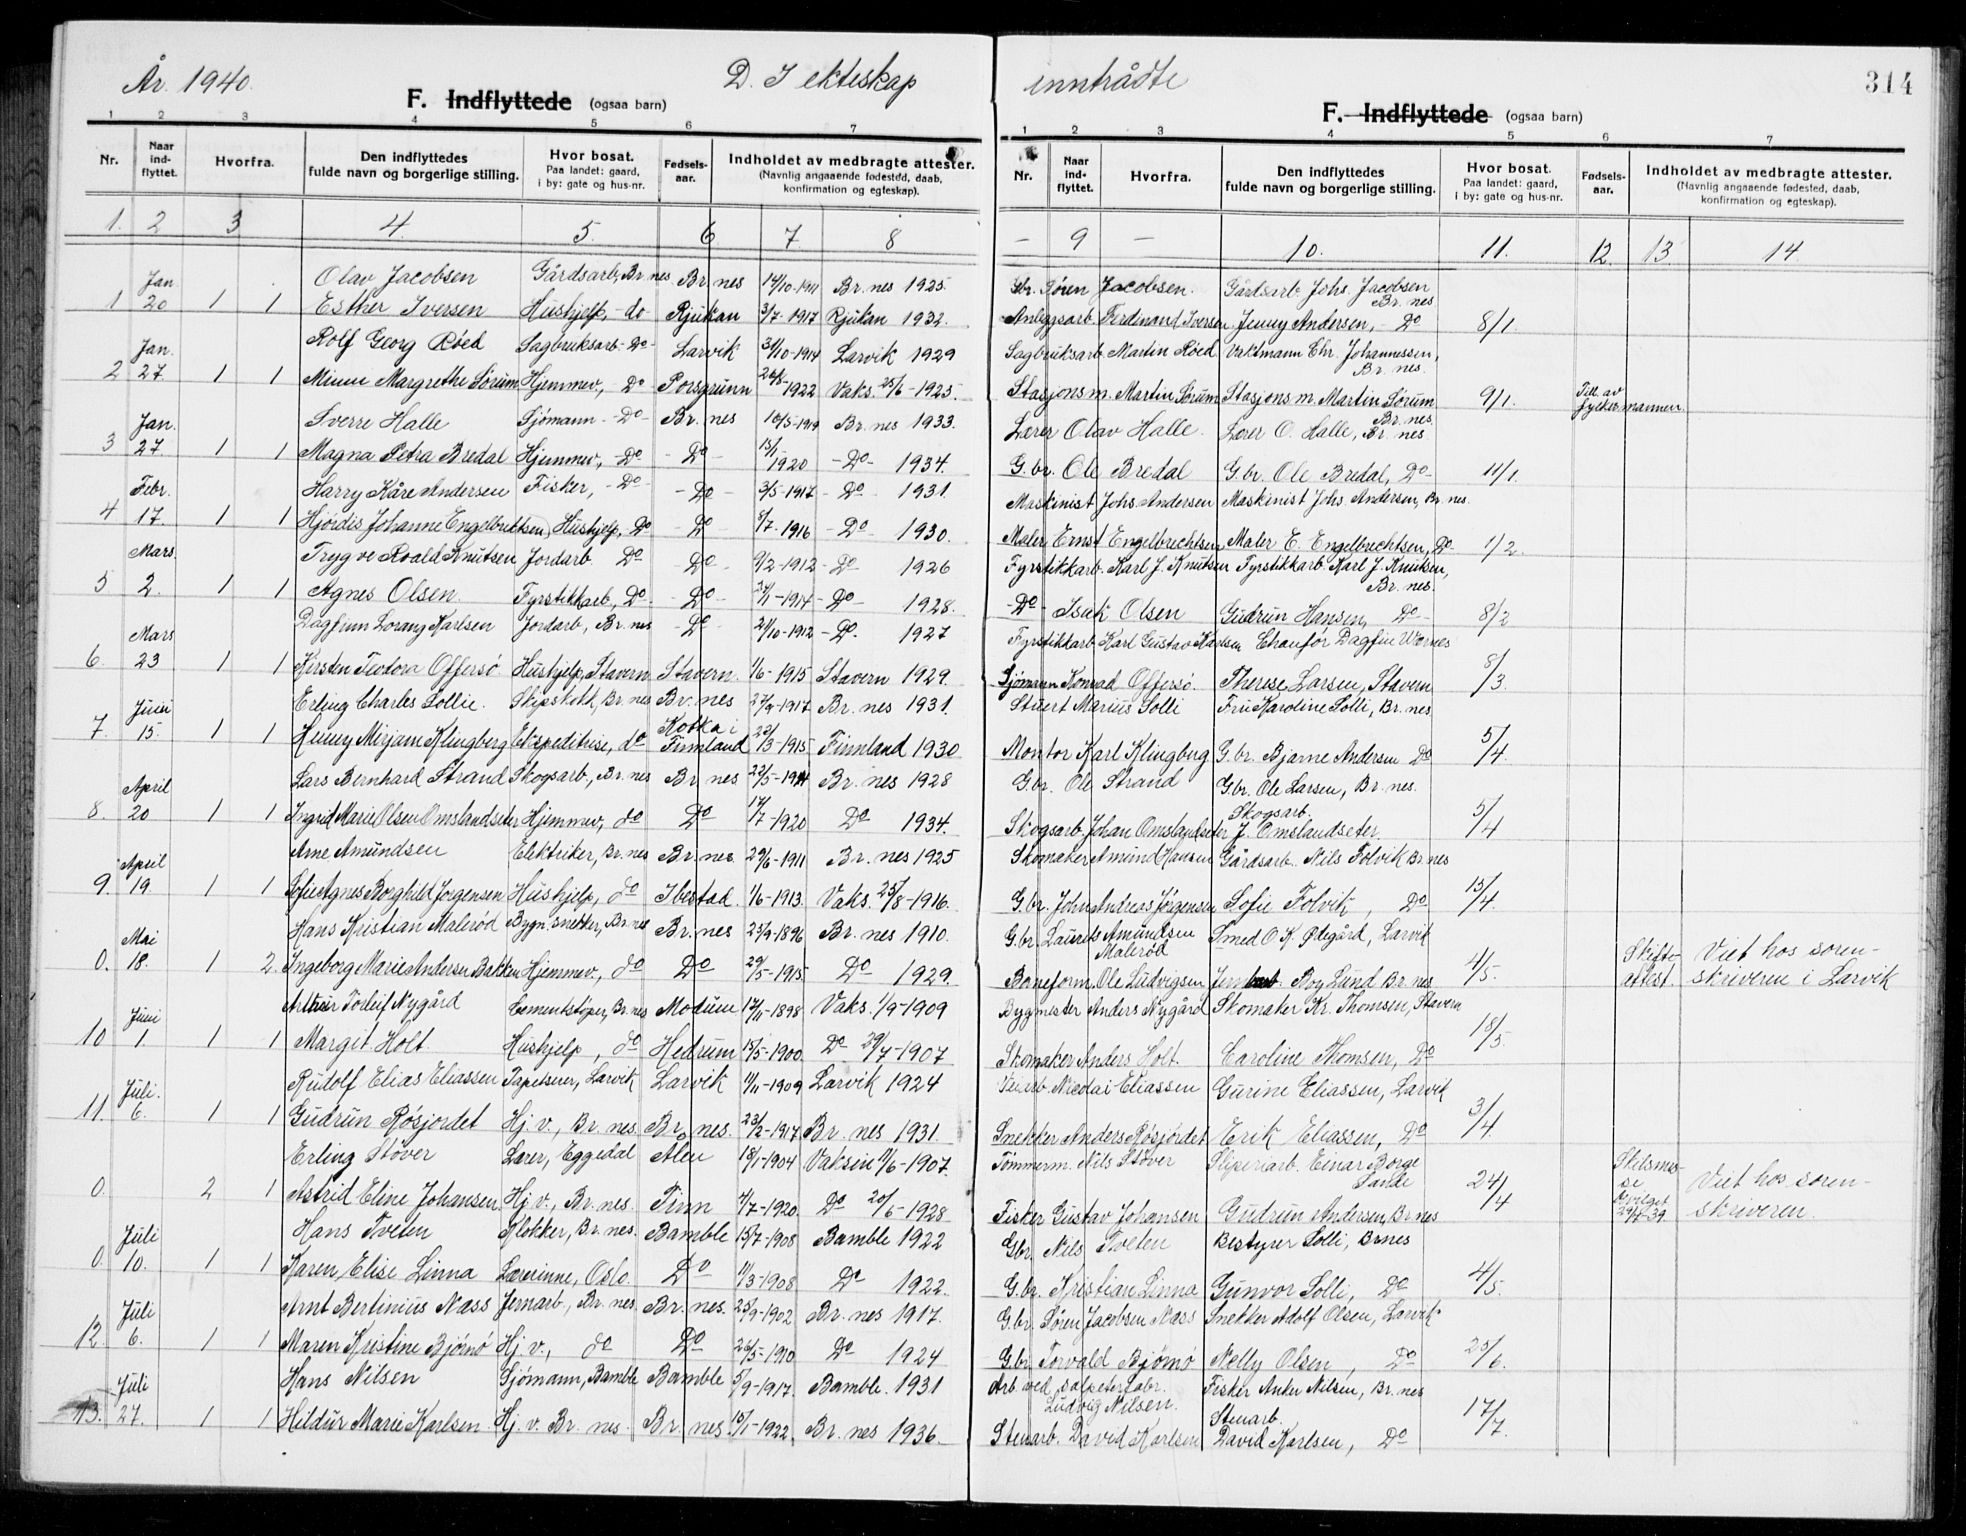 År. 1940.
D. I ekteskap inntrådte
314
F. Indflyttede (ogsaa barn)
F. Indflyttede (ogsaa barn)
1 2 3 4 5 6 7
1 2 3 4 5 6 7
Nr. Naar ind-flyttet. Hvorfra. Den indflyttedes fulde navn og borgerlige stilling. Hvor bosat. Paa landet: gaard, i by: gate og hus-nr. Fødsels-aar. Indholdet av medbragte attester. (Navnlig angaaende fødested, daab, konfirmation og egteskap).
Nr. Naar ind-flyttet. Hvorfra. Den indflyttedes fulde navn og borgerlige stilling. Hvor bosat. Paa landet: gaard, i by: gate og hus-nr. Fødsels-aar. Indholdet av medbragte attester. (Navnlig angaaende fødested, daab, konfirmation og egteskap).
1. 2 3 4. 5. 6 7 8 – 9 – 10. 11. 12. 13. 14
Jan. Olav Jacobsen Gårdsarb, Br.nes Br. nes 14/10-1911 Br. nes 1925. Gbr. Søren Jacobsen. Gårdsarb. Johs. Jacobsen Br. nes
1 20 1 1 Esther Iversen Hushjelp, - do Rjukan 3/7-1917 Rjukan 1932. Anleggsarb. Ferdinand Iversen Jenny Andersen, - Do 8/1.
Jan. Rolf Georg Røed Sagbruksarb - Do - Larvik 31/10-1914 Larvik 1929 Sagbruksarb. Martin Røed Vaktmann Chr. Johannessen, Br. nes.
2 27. 1 1 Minni Margrethe Sørum Hjemmev, - Do Porsgrunn 26/8-1922 Vaks. 25/6-1925. Stasjons m. Martin Sørum Stasjons m. Martin Sørum Br. nes. 9/1. Till. av fylkesmannen.
Jan. Sverre Halle Sjømann - Do - Br. nes 10/5-1919 Br. nes 1933. Lærer Olav Halle. Lærer O. Halle, Br. nes.
3 27 1 1 Magna Petra Bredal Hjemmev, - Do - Do - 15/1-1920 - Do - 1934. G.br. Ole Bredal G.br. Ole Bredal, Do 11/1
Febr. Harry Kåre Andersen Fisker, - Do - - Do - 3/5-1917 - Do - 1931. Maskinist Johs. Andersen Maskinist Johs. Andersen, Br. nes.
4 17. 1 1 Hjördis Johanne Engelbrektsen, Hushjelp, Do Do 8/7-1916 - Do - 1930. Maler Ernst Engelbrechtsen Maler E. Engelbrechtsen, Do 1/2.
Mars. Trygve Roald Knutsen Jordarb. Do - Do - 9/2-1912 - Do 1926 Fyrstikkarb. Karl J. Knutsen Fyrstikkarb. Karl J. Knutsen, Br. nes.
5 2. 1 1 Agnes Olsen. Fyrstikkarb, Do - Do - - Do - 1928. - Do - Isak Olsen Gudrun Hansen, Do 8/2
Mars Dagfinn Lorang Karlsen Jordarb, Br. nes - Do - 21/10-1912 - Do - 1927 Fyrstikkarb. Karl Gustav Karlsen Chaufør Dagfin Wernes
6. 23 1 1 Kirsten Teodora Offersø Hushjelp, Stavern. Stavern. 1/6-1915 Stavern 1929. Sjømann Konrad Offersø. Therese Larsen, Stavern 8/3
Juni Erling Charles Sollie. Skipskokk, Br. nes Br. nes 27/9-1917 Br. nes 1931. Stuert Marius Solli Fru Karoline Solli, Br. nes.
7. 15. 1 1 Henny Mirjam Klingberg Ekspeditrise, do Kotka i Finnland 23/3-1915 Finnland 1930 Montør Karl Klingberg G.br. Bjarne Andersen Do 5/4.
April Lars Bernhard Strand Skogsarb, Br. nes Br. nes. 22/5-1911 Br. nes 1928 G.br. Ole Strand G.br. Ole Larsen, Br. nes.
8. 20 1 1 Ingrid Marie Olsen Omslandseter Hjemmev, do Do 17/7-1920 Do 1934. Skogsarb. Johan Omslandseter Skogsarb. J. Omslandseter 5/4
April Arne Amundsen Elektriker, Br. nes Br. nes. 29/6-1911 Br. nes 1925 Skomaker Amund Hansen Gårdsarb. Nils Folvik Br.nes
9. 19. 1 1 Sofie Agnes Borghild Jørgensen Hushjelp, do Ibestad. 1/6-1913. Vaks. 25/8-1916. G.br. John Andreas Jørgensen Sofie Folvik, Do 15/4.
Mai Hans Kristian Malerød Bygn. snekker, Br. nes Br. nes 25/9-1896 Br. nes 1910. G.br. Laurits Amundsen Malerød Smed O K. Ødegård, Larvik
0. 18. 1 2. Ingeborg Marie Andersen Bakken Hjemmev, do Do 29/5-1915 Do 1929. Baneform. Ole Ludvigsen Boy Lund Br. nes 4/5. Skifte-attest. Viet hos soren-skriveren i Larvik
Juni Arthur Torleif Nygård Cementstøper, Br. nes Modum 17/11-1898 Vaks. 1/9-1909 Bygmester Anders Nygård Skomaker Kr. Thomsen, Stavern
10 1 1 1 Margit Holt. Hushjelp, do Hedrum 15/5-1900. Do 29/7-1907 Skomaker Anders Holt. Caroline Thomsen, Do 18/5.
Juli. Rudolf Elias Eliassen Tapetserer, Larvik Larvik 11/11-1909 Larvik 1924 Nicolai Eliassen Gurine Eliassen, Larvik
11. 6. 1 1 Gudrun Røsjordet Hj. v., Br. nes. Br. nes. 23/2-1917 Br. nes 1931. Snekker Anders Røsjordet Erik Eliassen, Do 3/4.
Erling Støver Lærer, Eggedal Ålen 18/1-1904 Vaksin 11/6-1907. Tømmerm. Nils Støver Sliperiarb. Einar Borge Sande
0. 2 1 Astrid Eline Johansen Hj. v., Br. nes. Tinn 4/7-1920. Do 20/6-1928. Fisker Gustav Johansen Gudrun Andersen, Br.nes 24/4 Skilsmis-se bevilget 39. Viet hos soren-skriveren.
Juli Hans Tveten Klokker, Br. nes. Bamble 15/7-1908 Bamble 1922 Gbr. Nils Tveten Bestyrer Solli, Brnes
0. 10. 1 1 Karen Elise Linna Lærerinne, Oslo. Do 11/3-1908 Do 1922. G.br. Kristian Linna Gunvor Solli, Do 4/5.
Juli Arnt Bertinius Næss Jernarb., Br. nes. Br. nes. 25/9-1902 Br. nes 1917. G.br. Søren Jacobsen Næss Snekker Adolf Olsen, Larvik
12. 6. 1 1 Maren Kristine Bjørnø Hj. v., do Do 26/5-1910 Do 1924 G.br. Torvald Bjørnø Nelly Olsen, Do 25/6.
Juli Hans Nilsen Sjømann, Bamble Bamble 5/9-1917. Bamble. 1931 Arb. ved salpeterfabr. Ludvig Nilsen. Fisker Anker Nilsen, Br. nes
13. 27. 1 1 Hildur Marie Karlsen Hj. v. Br. nes. Br. nes. 15/1-1922. Br. nes 1936. Stenarb. David Karlsen Stenarb. David Karlsen, Do 17/7.